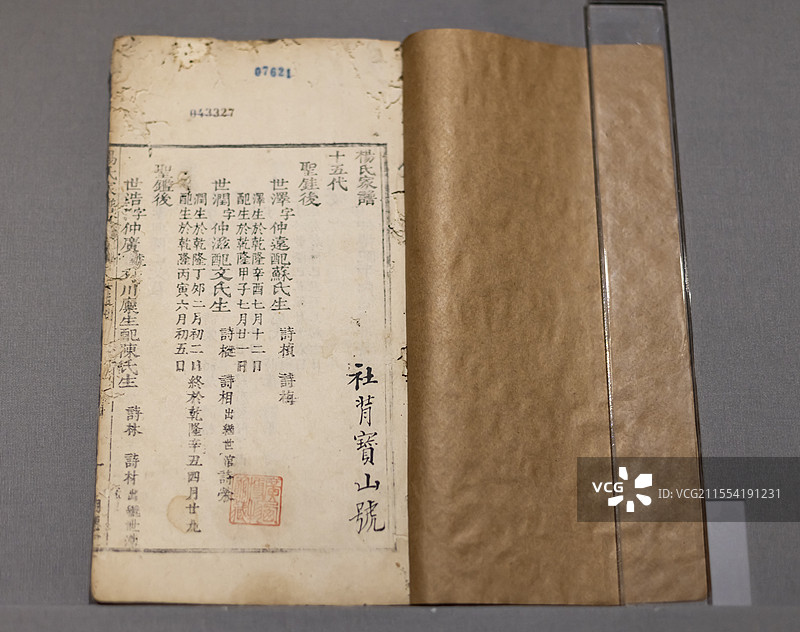 07621
043327
楊氏家譜
十五代
聖鉎後
世澤字仲遠配蘇氏生 詩楨 詩梅
澤生於乾隆辛酉七月十二日
配生於乾隆甲子七月廿一日
世潤字仲滋配文氏生 詩樅 詩相出繼世
潤生於乾隆丁卯二月初二日終於乾隆辛丑四月廿九
配生於乾隆丙寅六月初五日
後
世浩字仲廣 川廩生配陳氏生 詩林 詩材出繼世
社背寶山號
VCG
VCG211554191231